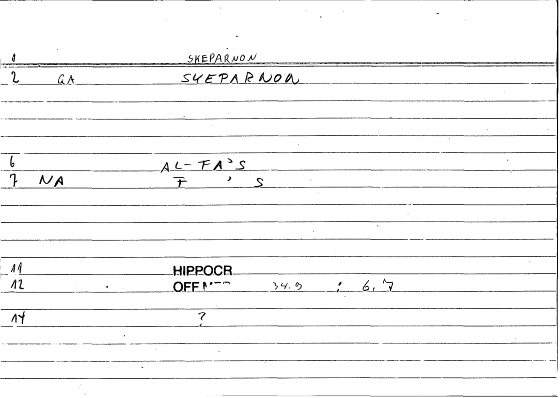 1 SKEPARNON
2 GA SKEPARNON
6 AL-FA'S
7 NA F ' S
11 HIPPOCR
12 OFF 34.9 : 6,7
14 ?